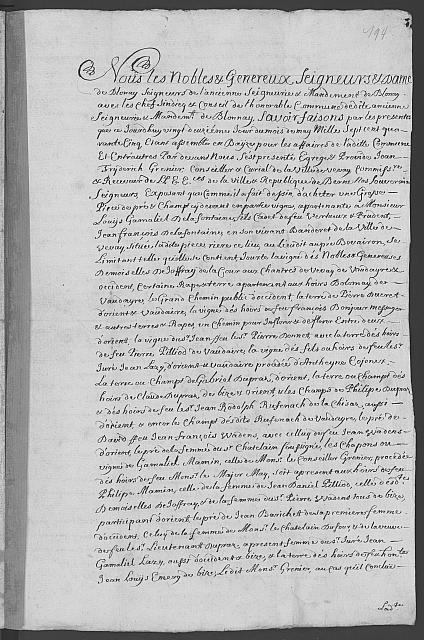 194
Nous les Nobles & Genereux Seigneurs & Dame
de Blonay Seigneurs de l'ancienne Seigneurie & Mandement de Blonay
avec les Chefs Sindics et Conseil de l'honorable Commune dedite ancienne
Seigneurie & Mandemt. de Blonnay, Savoir faisons par les presentes
que ce Jourdhuy vingt deuxième Jour du mois de may Mille Sept cent qua-
rante Cinq Etans assemblés en pour les affaires de ladite Commune
Et Entrautres Par devant Nous, s'est presenté Egrege & Provide Jean
Friderich Grenier Conseiller & Curial de la Ville de Vevey Commissre.
& Receveur de LL. E. E. de la Ville & Republique de Berne Nos Souverains
Seigneurs Exposant que Comme il a fait dessein d'acheter une Grosse
Piece de prés & Champ icy devant en partie vigne, appartenante a Monsieur
Louys Gamaliel De la fontaine, fils Cadet de feu Vertueux & Prudent
Jean François De la fontaine en son vivant Banderet de la Ville de
Vevay Située la dite piece riere ce lieu, au lieu dit aupré Bovairon, se
Limitant telle qu'elle se Contient, Jouxte la vigne des Nobles & Genereuses
Demoiselles de Joffrey de la Cour aux Chantres de Vevay de Vaudayre &
occident, Certaine Rape & terre appartenant aux hoirs Dolomay de
Vaudayre, le Grand Chemin public d'occident, la terre de Pierre Ducret
d'orient & Vaudaire, la vigne des hoirs de feu François Bonjour Messeyer
et autres terres & Rapes, un Chemin pour
d'orient, la vigne dus. Jean feu les. Pierre Donnet avec la terre des hoirs
de feu Pierre Pilliod de Vaudaire, la vigne des fils ou hoirs de feu les.
Juré Jean Lazy, d'orient & vaudaire procedée d'Antheyne Cosones.
La terre ou Champt de Gabriel Dupraz, d'orient, la terre ou Champt des
hoirs de Claude Dupraz, de bize & Orient & les Champs de Philipe Dupraz
& des hoirs de feu les. Jean Rodolph Rusenach de la Chisaz, aussi
d'orient, & encor le Champ desdits Rusenach de Vaudayre, le pré de
David feu Jean François Wadens, avec celluy de feu Jean Wadens
d'orient, le pré de la femme dus. Chatelain Couvignie, les Chapons ou
vigne de Gamaliel Mamin, celle de Monsr. le Conseiller Grenier, procedée
des hoirs de feu Monsr. le Major May, soit apresent aux hoirs de feu
Philipe Mamin, celle de la femme de Jean Daniel Pilliod, celles desdites
Demoiselles de Joffrey, & de la femme dus. Pierre Wadens tous de bize,
participant d'orient, le pré de Jean Barichet de sa premiere femme
d'occident, Celuy de la femme de Monsr. le Chatelain Dufour & de la veuve
de feu les. Lieutenant Dupraz, apresent femme dus. Juré Jean
Gamaliel Lazy, aussi d'occident & bize, & la terre des hoirs de feu honte.
Jean Louys Emery de bize, Ledit Monsr. Grenier, au cas qu'il Conclue